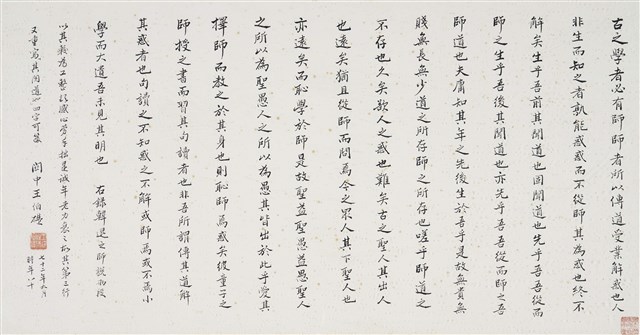 古之學者必有師師者所以傳道受業解惑也人
非生而知之者孰能惑惑而不從師其為惑也終不
解矣生乎吾前其聞道也固聞道也先乎吾吾從而
師之生乎吾後其聞道也亦先乎吾吾從而師之吾
師道也夫庸知其年之先後生於吾乎是故無貴無
賤無長無少道之所存師之所存也嗟乎師道之
不存也久矣欲人之惑也難矣古之聖人其出人
也遠矣猶且從師而問焉今之眾人其下聖人也
亦遠矣而恥學於師是故聖益聖愚益愚聖人
之所以為聖愚人之所以為愚其皆出於此乎愛其
擇師而教之於其身也則恥師焉惑矣彼童子之
師授之書而習其句讀者也非吾所謂傳其道解
其惑者也句讀之不知惑之不解或師焉或不焉小
學而大遺吾未見其明也 右錄韓退之師說
以其較為工整
又重寫其聞道也四字可笑 閩中王
七十二年 時年八十